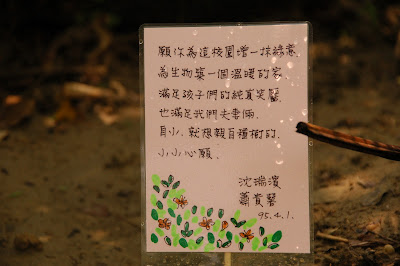 願你為這校園增一抹綠意
為生物築一個溫暖的家.
滿足孩子們的純真笑靨
也滿足我們夫妻倆.
自小.就想親自種樹的.
小小心願.
沈瑞濱
蕭貴馨
95.4.1.